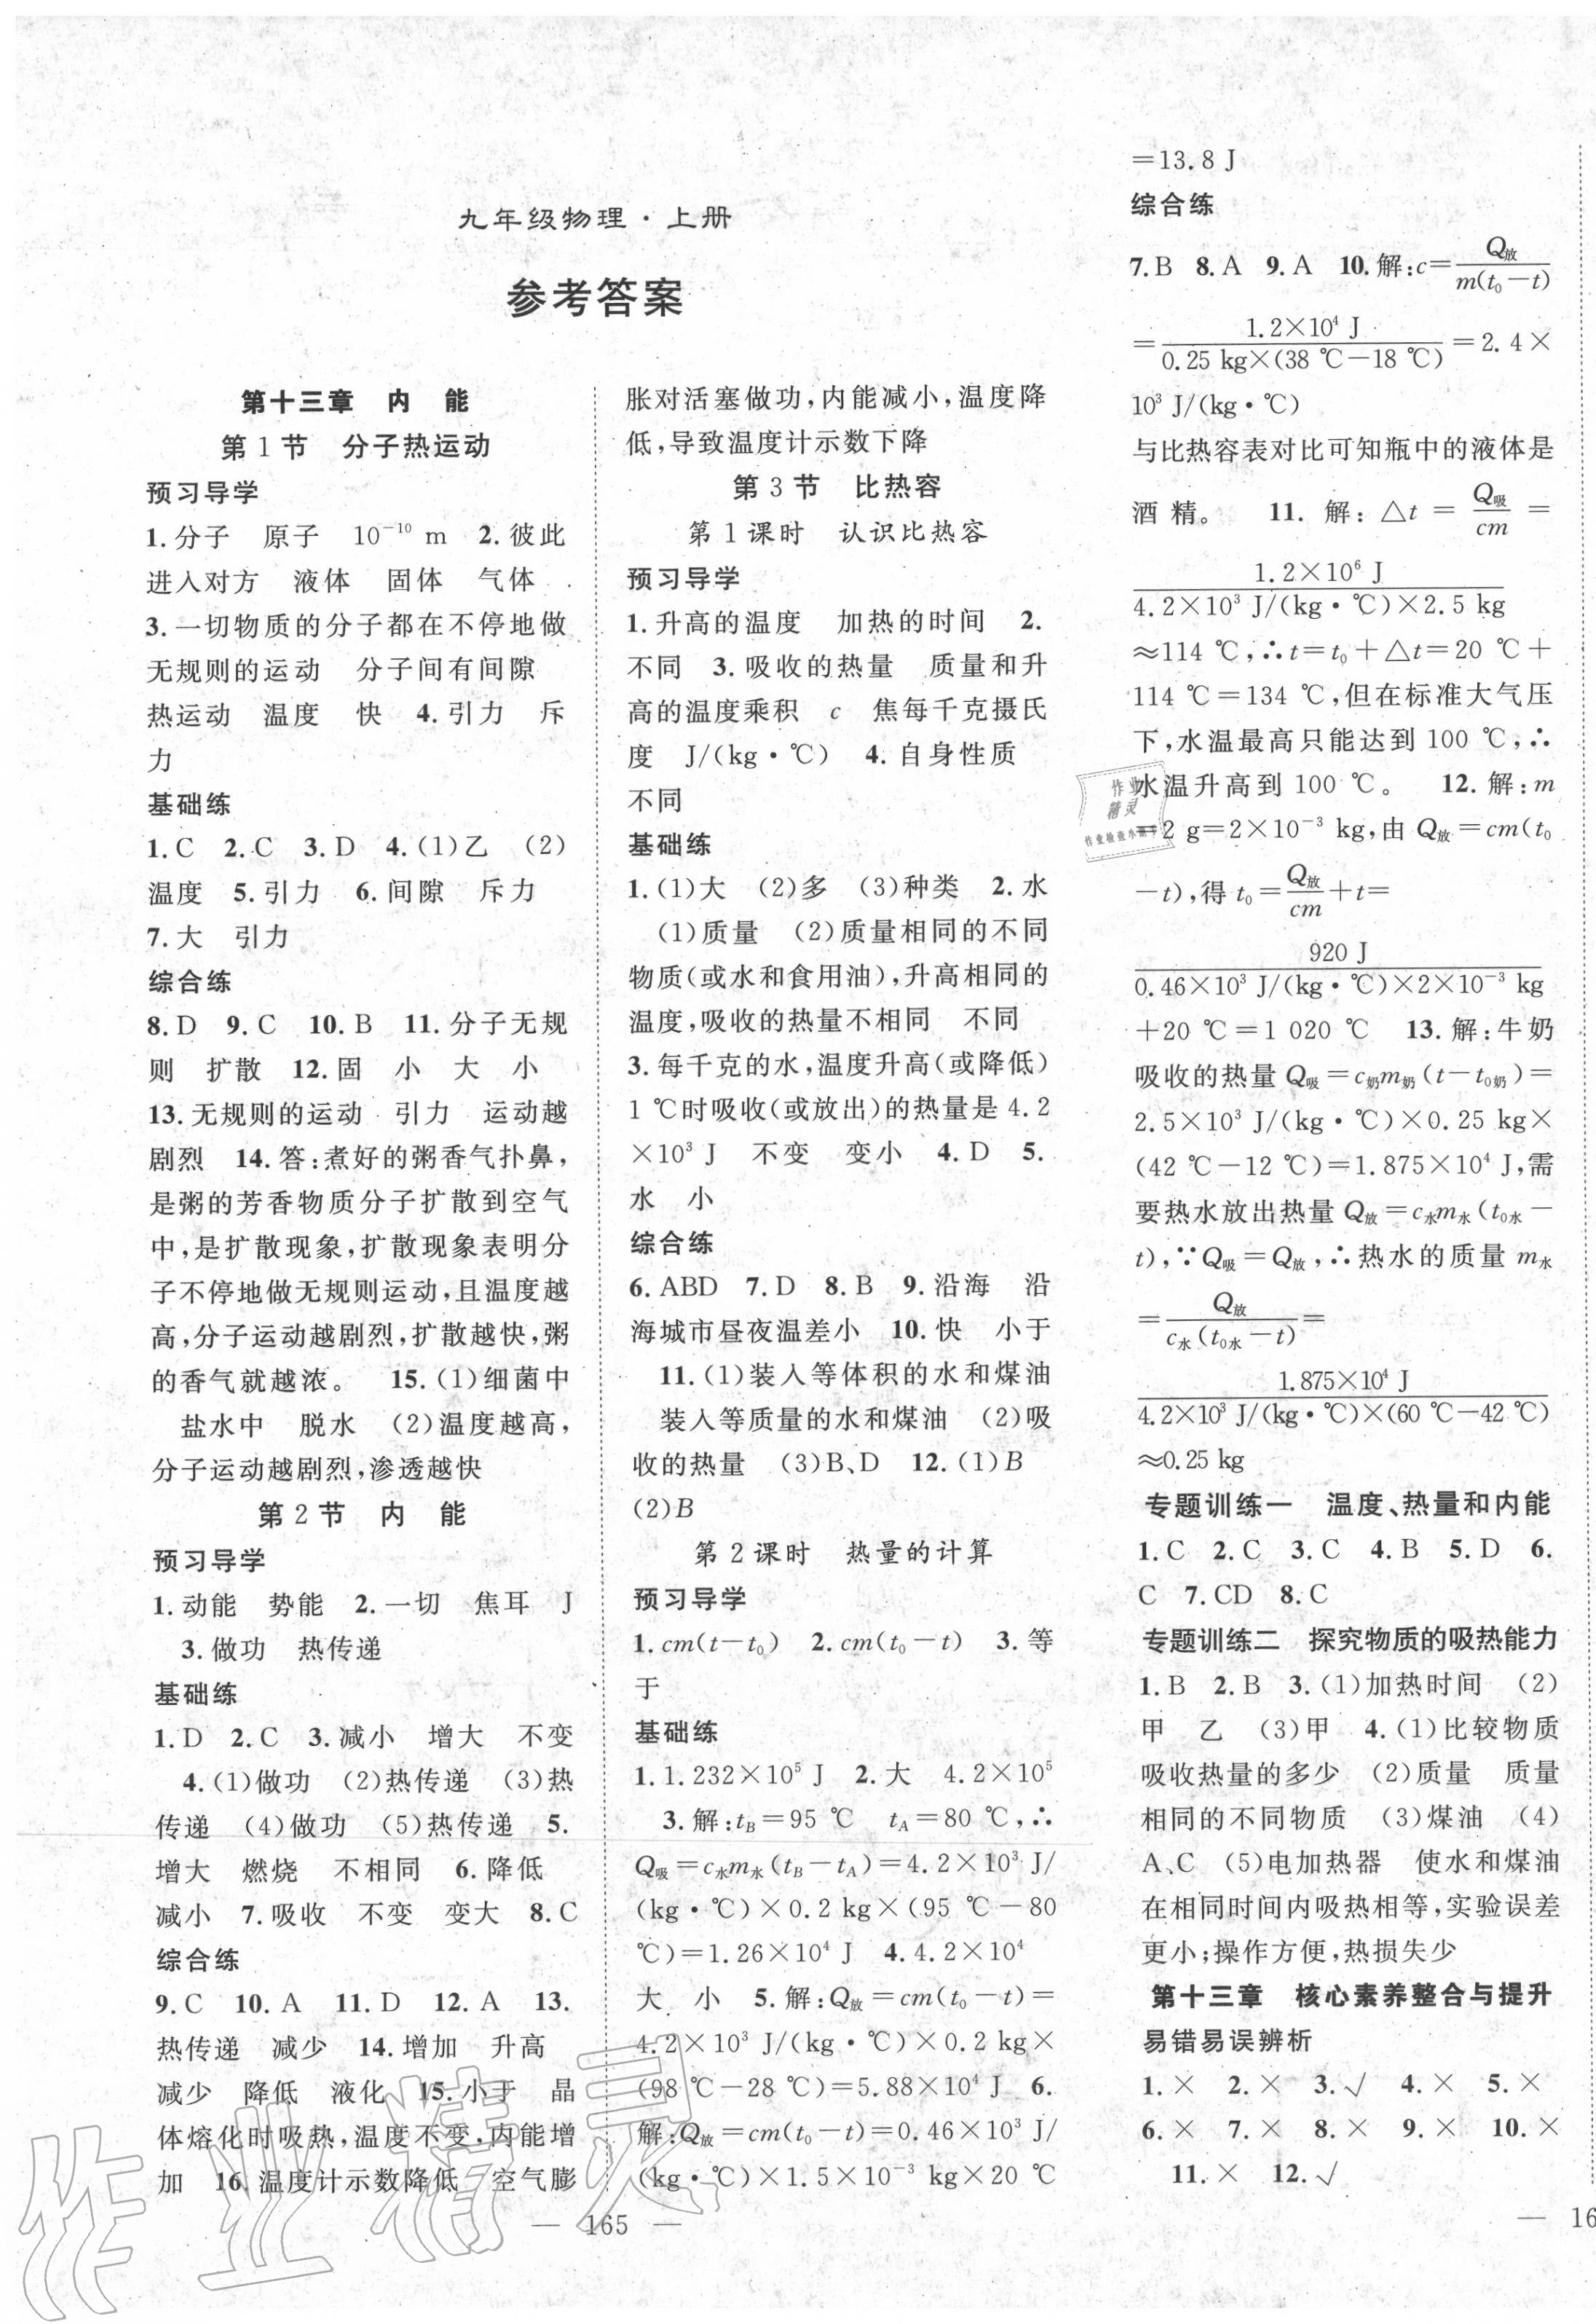 九年级物理·上册
参考答案
第十三章 内 能
第1节 分子热运动
预习导学
1.分子 原子 10⁻¹⁰ m 2.彼此
进入对方 液体 固体 气体
3.一切物质的分子都在不停地做
无规则的运动 分子间有间隙
热运动 温度 快 4.引力 斥
力
基础练
1.C 2.C 3.D 4.(1)乙 (2)
温度 5.引力 6.间隙 斥力
7.大 引力
综合练
8.D 9.C 10.B 11.分子无规
则 扩散 12.固 小 大 小
13.无规则的运动 引力 运动越
剧烈 14.答:煮好的粥香气扑鼻,
是粥的芳香物质分子扩散到空气
中,是扩散现象,扩散现象表明分
子不停地做无规则运动,且温度越
高,分子运动越剧烈,扩散越快,粥
的香气就越浓。 15.(1)细菌中
盐水中 脱水 (2)温度越高,
分子运动越剧烈,渗透越快
第2节 内 能
预习导学
1.动能 势能 2.一切 焦耳 J
3.做功 热传递
基础练
1.D 2.C 3.减小 增大 不变
4.(1)做功 (2)热传递 (3)热
传递 (4)做功 (5)热传递 5.
增大 燃烧 不相同 6.降低
减小 7.吸收 不变 变大 8.C
综合练
9.C 10.A 11.D 12.A 13.
热传递 减少 14.增加 升高
减少 降低 液化 15.小于 晶
体熔化时吸热,温度不变,内能增
加 16.温度计示数降低 空气膨
胀对活塞做功,内能减小,温度降
低,导致温度计示数下降
第3节 比热容
第1课时 认识比热容
预习导学
1.升高的温度 加热的时间 2.
不同 3.吸收的热量 质量和升
高的温度乘积 c 焦每千克摄氏
度 J/(kg·℃) 4.自身性质
不同
基础练
1.(1)大 (2)多 (3)种类 2.水
(1)质量 (2)质量相同的不同
物质(或水和食用油),升高相同的
温度,吸收的热量不相同 不同
3.每千克的水,温度升高(或降低)
1 ℃时吸收(或放出)的热量是4.2
×10³ J 不变 变小 4.D 5.
水 小
综合练
6.ABD 7.D 8.B 9.沿海 沿
海城市昼夜温差小 10.快 小于
11.(1)装入等体积的水和煤油
装入等质量的水和煤油 (2)吸
收的热量 (3)B、D 12.(1)B
(2)B
第2课时 热量的计算
预习导学
1.cm(t−t₀) 2.cm(t₀−t) 3.等
于
基础练
1.1.232×10⁵ J 2.大 4.2×10⁵
3.解:t_B=95 ℃ t_A=80 ℃,∴
Q吸=c水m水(t_B−t_A)=4.2×10³ J/
(kg·℃)×0.2 kg×(95 ℃−80
℃)=1.26×10⁴ J 4.4.2×10⁴
大 小 5.解:Q放=cm(t₀−t)=
4.2×10³ J/(kg·℃)×0.2 kg×
(98 ℃−28 ℃)=5.88×10⁴ J 6.
解:Q放=cm(t₀−t)=0.46×10³ J/
(kg·℃)×1.5×10⁻³ kg×20 ℃
— 165 —
=13.8 J
综合练
7.B 8.A 9.A 10.解:c=Q放/m(t₀−t)
=1.2×10⁴ J/0.25 kg×(38 ℃−18 ℃)=2.4×
10³ J/(kg·℃)
与比热容表对比可知瓶中的液体是
酒精。 11.解:△t=Q吸/cm=
1.2×10⁶ J/4.2×10³ J/(kg·℃)×2.5 kg
≈114 ℃,∴t=t₀+△t=20 ℃+
114 ℃=134 ℃,但在标准大气压
下,水温最高只能达到100 ℃,∴
水温升高到100 ℃。 12.解:m
=2 g=2×10⁻³ kg,由Q放=cm(t₀
−t),得t₀=Q放/cm+t=
920 J/0.46×10³ J/(kg·℃)×2×10⁻³ kg
+20 ℃=1 020 ℃ 13.解:牛奶
吸收的热量Q吸=c奶m奶(t−t₀奶)=
2.5×10³ J/(kg·℃)×0.25 kg×
(42 ℃−12 ℃)=1.875×10⁴ J,需
要热水放出热量Q放=c水m水(t₀水−
t),∵Q吸=Q放,∴热水的质量m水
=Q放/c水(t₀水−t)=
1.875×10⁴ J/4.2×10³ J/(kg·℃)×(60 ℃−42 ℃)
≈0.25 kg
专题训练一 温度、热量和内能
1.C 2.C 3.C 4.B 5.D 6.
C 7.CD 8.C
专题训练二 探究物质的吸热能力
1.B 2.B 3.(1)加热时间 (2)
甲 乙 (3)甲 4.(1)比较物质
吸收热量的多少 (2)质量 质量
相同的不同物质 (3)煤油 (4)
A、C (5)电加热器 使水和煤油
在相同时间内吸热相等,实验误差
更小;操作方便,热损失少
第十三章 核心素养整合与提升
易错易误辨析
1.× 2.× 3.√ 4.× 5.×
6.× 7.× 8.× 9.× 10.×
11.× 12.√
— 16
作业
精灵
作业检查小助手
作业精灵